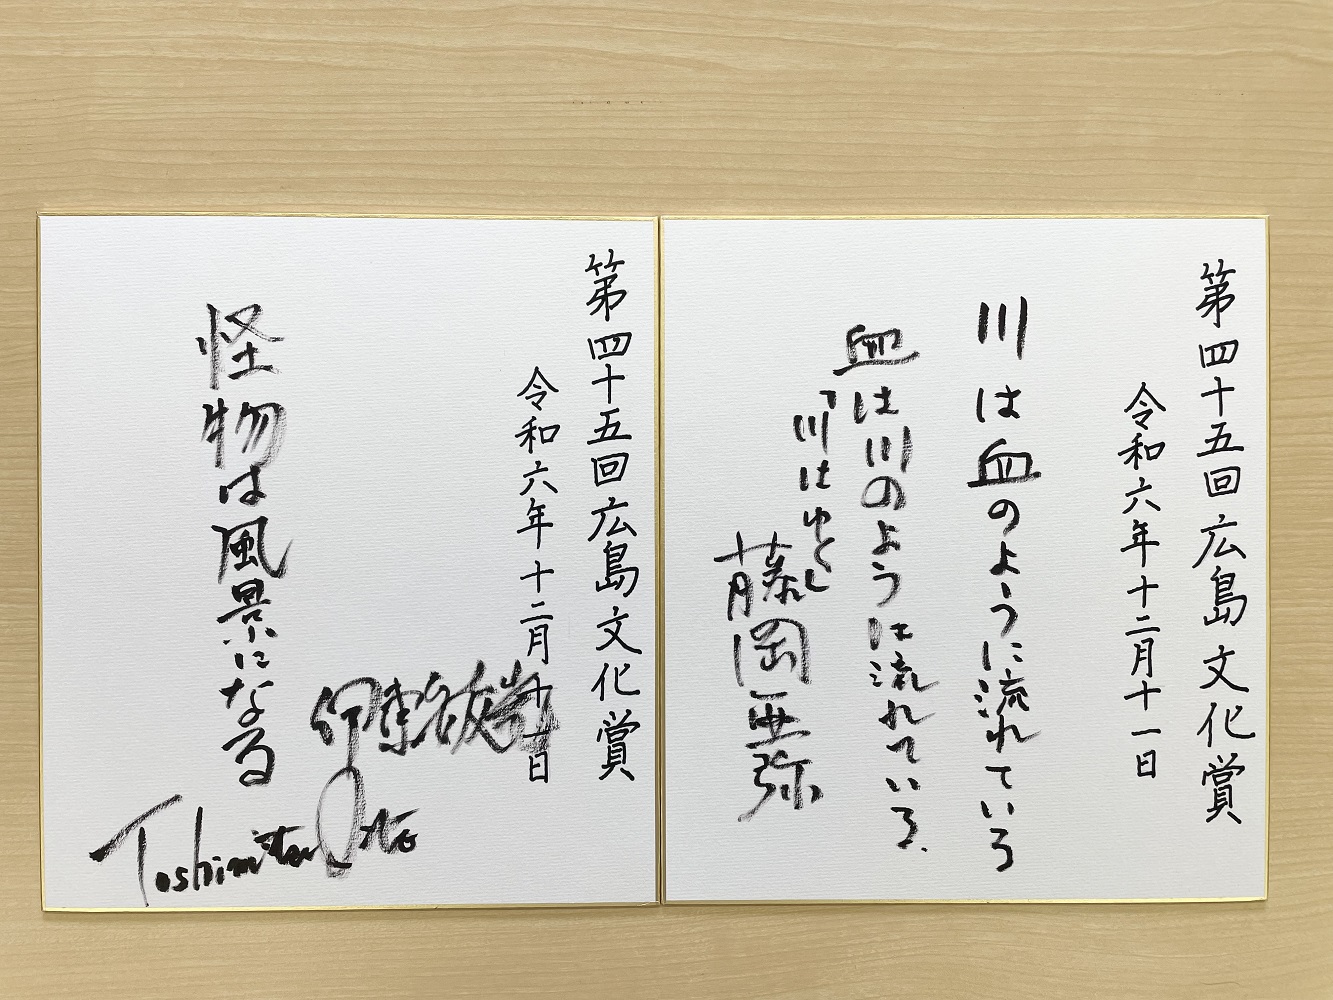 第四十五回広島文化賞
令和六年十二月十一日
川は血のように流れている
血は川のようには流れている.
「川はゆく」
藤岡亜弥
第四十五回広島文化賞
令和六年十二月十一日
怪物は風景になる
伊東敏光
Toshimitsu Ito